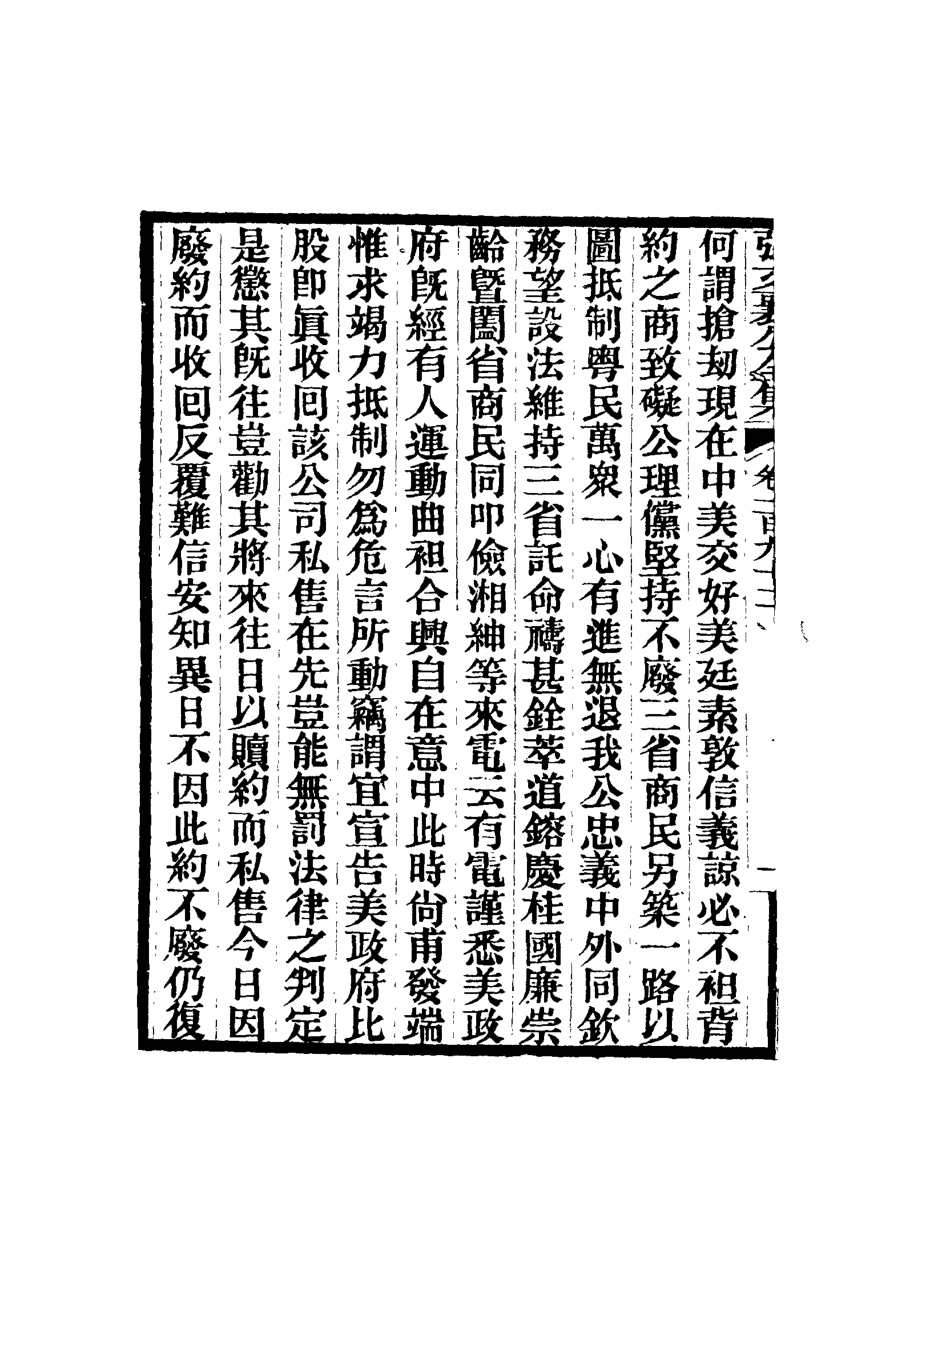 張文襄公全集 卷一百九十二 二
何謂搶劫現在中美交好美廷素敦信義諒必不袒背
約之商致礙公理儻堅持不廢三省商民另築一路以
圖抵制粵民萬眾一心有進無退我公忠義中外同欽
務望設法維持三省託命禱甚銓萃道鎔慶桂國廉崇
齡暨闔省商民同叩儉湘紳等來電云有電謹悉美政
府旣經有人運動曲袒合興自在意中此時尙甫發端
惟求竭力抵制勿爲危言所動竊謂宜宣告美政府比
股卽眞收回該公司私售在先豈能無罰法律之判定
是懲其旣往豈勸其將來往日以贖約而私售今日因
廢約而收回反覆難信安知異日不因此約不廢仍復